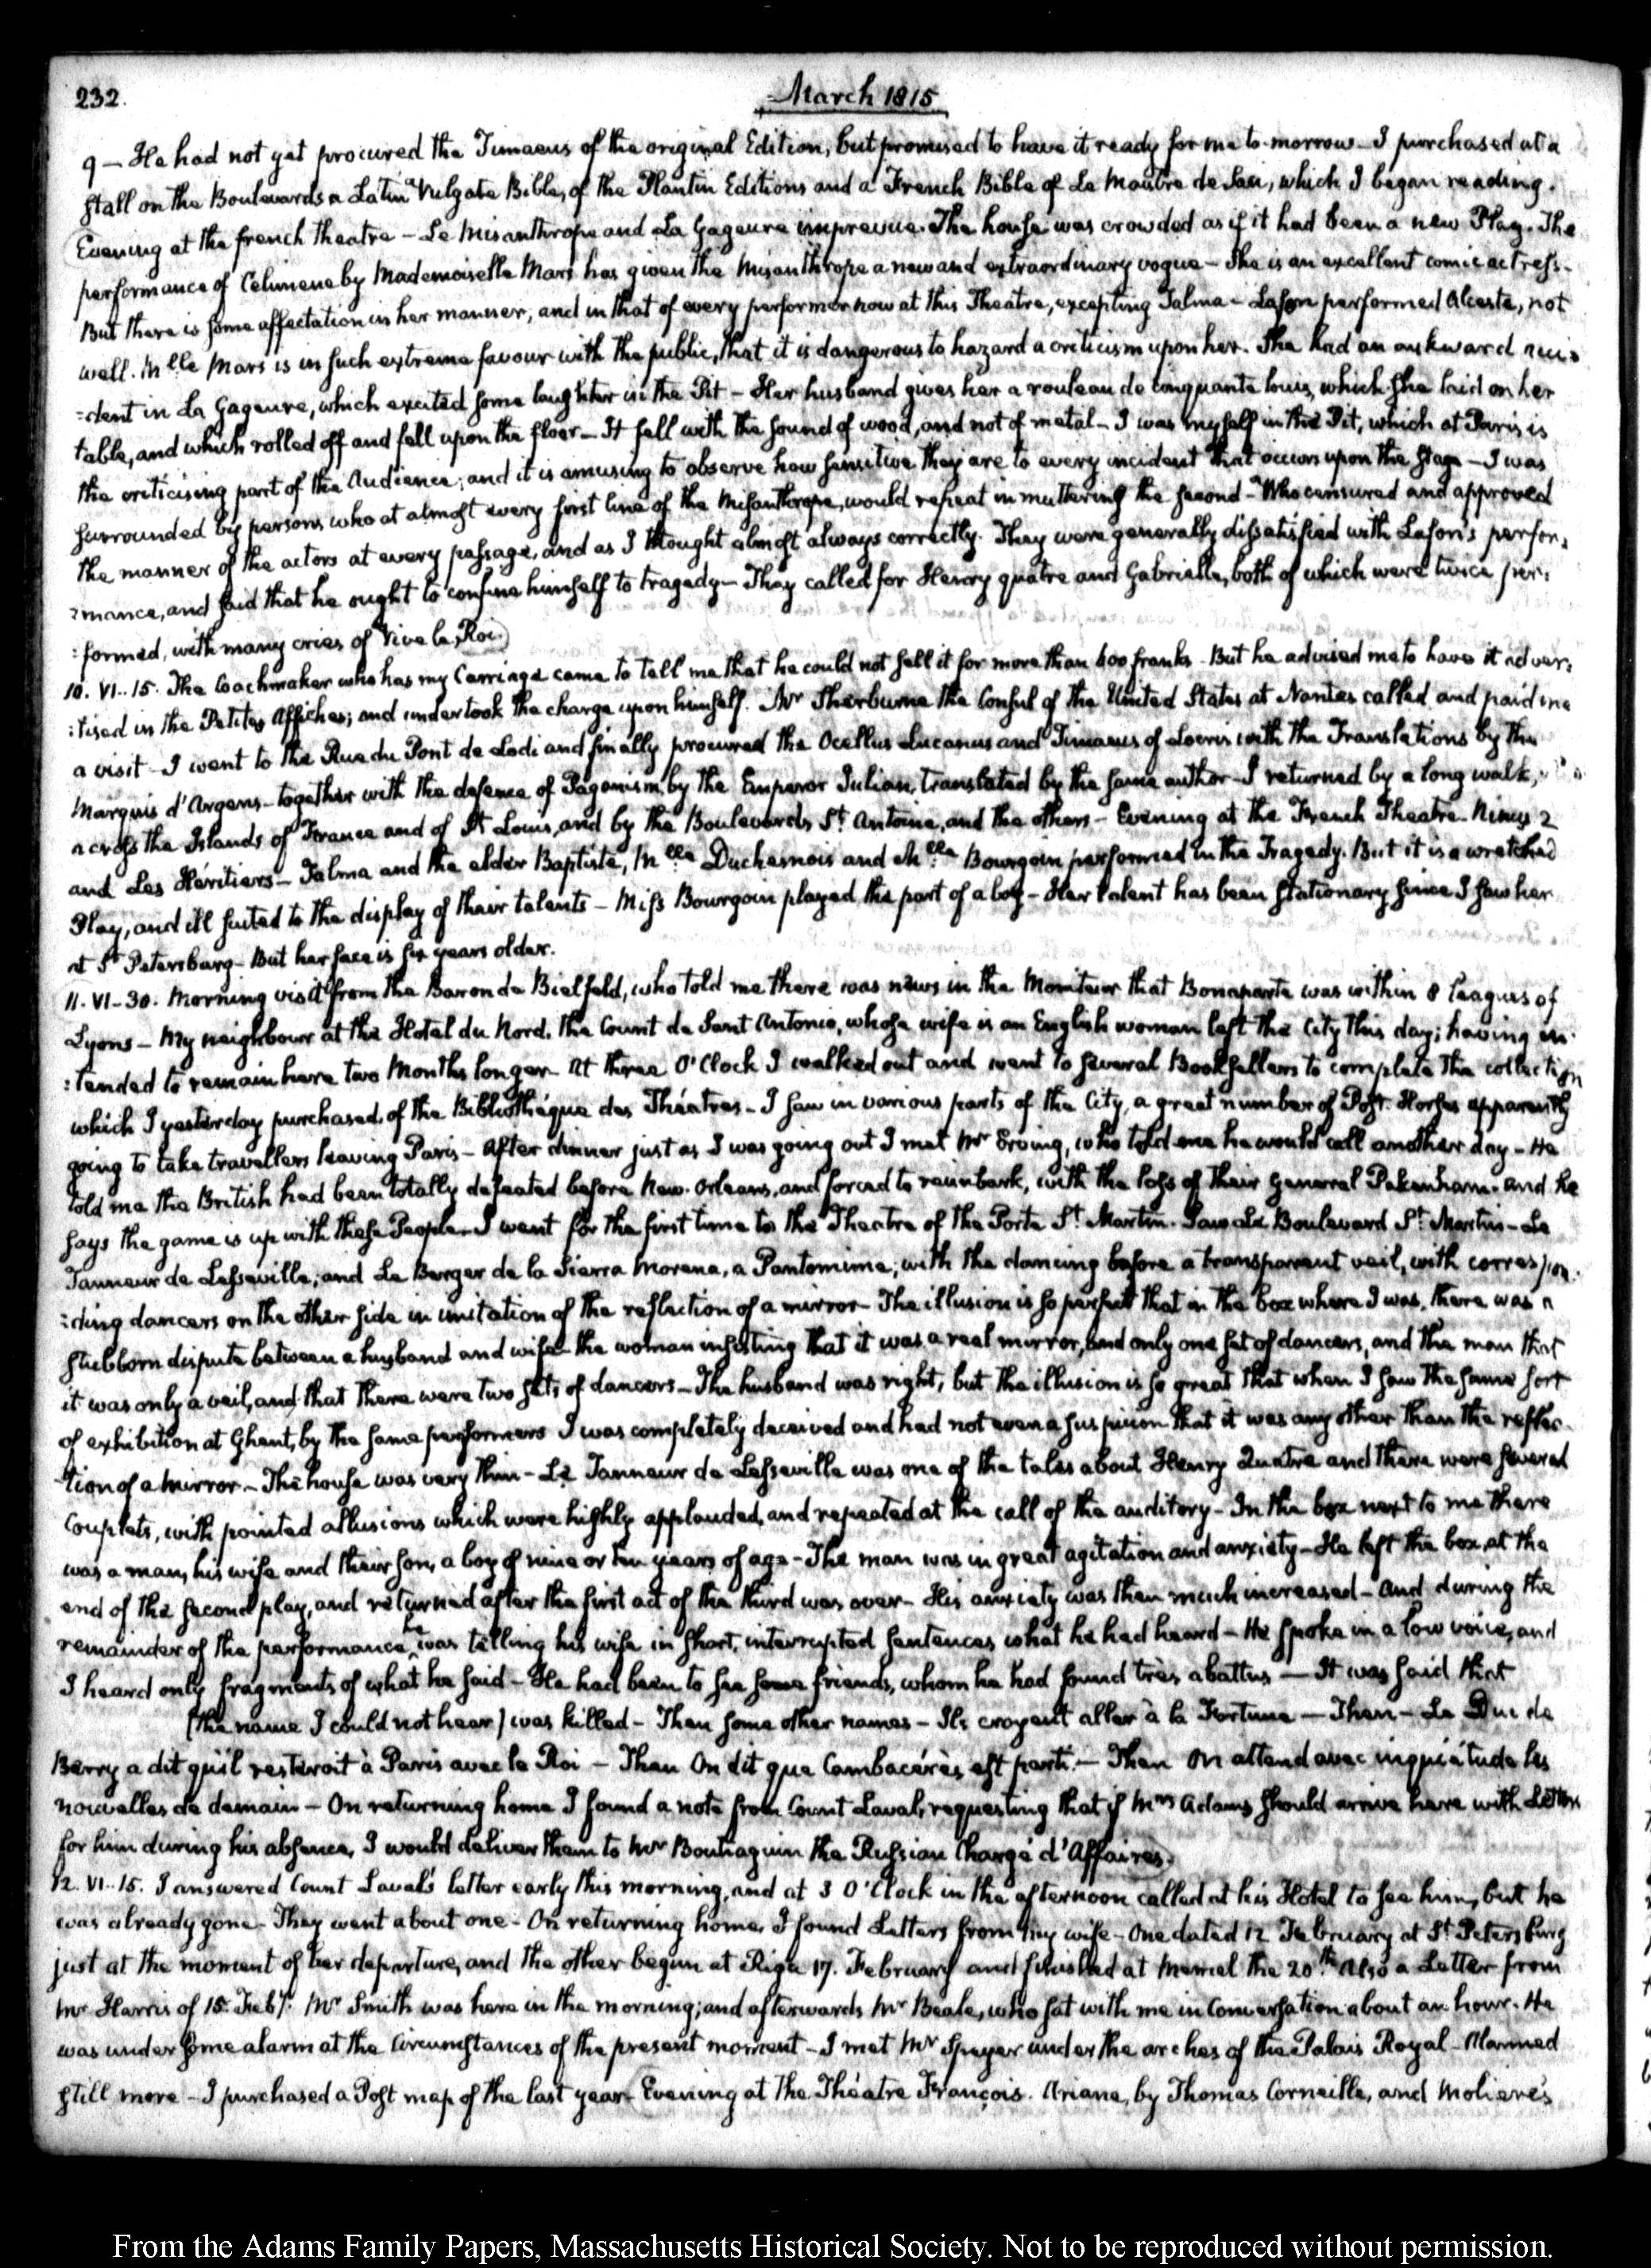 232.
March 1815.
9 — He had not yet procured the Timaeus of the original Edition, but promised to have it ready for me to-morrow — I purchased at a
stall on the Boulevards a Latin Vulgate Bible, of the Plantin Editions and a French Bible of Le Maistre de Saci, which I began reading.
Evening at the french theatre — Le Misanthrope and La Gageure imprevue. The house was crowded as if it had been a new Play. The
performance of Celimene by Mademoiselle Mars has given the Misanthrope a new and extraordinary vogue — She is an excellent comic actress —
But there is some affectation in her manner, and in that of every performer now at this Theatre, excepting Talma — Lafon performed Alceste, not
well. Mlle Mars is in such extreme favour with the public, that it is dangerous to hazard a criticism upon her. She had an aukward acci-
:dent in La Gageure, which excited some laughter in the Pit — Her husband gives her a rouleau de cinquante louis, which she laid on her
table, and which rolled off and fell upon the floor — It fell with the sound of wood, and not of metal — I was myself in the Pit, which at Paris is
the criticising part of the Audience; and it is amusing to observe how sensitive they are to every incident that occurs upon the stage — I was
surrounded by persons, who at almost every first line of the Misanthrope, would repeat in muttering the second — Who censured and approved
the manner of the actors at every passage, and as I thought almost always correctly. They were generally dissatisfied with Lafon's perfor:
:mance, and said that he ought to confine himself to tragedy — They called for Henry quatre and Gabrielle, both of which were twice per:
:formed, with many cries of Vive le Roi.
10. VI..15. The Coachmaker who has my Carriage came to tell me that he could not sell it for more than 600 franks — But he advised me to have it adver:
:tised in the Petites Affiches; and undertook the charge upon himself. Mr Sherburne the Consul of the United States at Nantes called and paid me
a visit — I went to the Rue du Pont de Lodi and finally procured the Ocellus Lucanus and Timaeus of Locris with the Translations by the
Marquis d'Argens — together with the defence of Paganism by the Emperor Julian, translated by the same author — I returned by a long walk,
across the Islands of France and of St Louis, and by the Boulevards St Antoine, and the others — Evening at the French Theatre. Ninus 2
and Les Héritiers — Talma and the elder Baptiste, Mlle Duchesnois and Mlle Bourgoin performed in the Tragedy. But it is a wretched
Play, and ill suited to the display of their talents — Miss Bourgoin played the part of a boy — Her talent has been stationary since I saw her
at St Petersburg — But her face is six years older.
11. VI-30. Morning visit from the Baron de Bielfeld, who told me there was news in the Moniteur that Bonaparte was within 8 leagues of
Lyons — My neighbour at the Hotel du Nord. The Count de Sant Antonio, whose wife is an English woman left the City this day; having in:
:tended to remain here two Months longer — At three O'Clock I walked out and went to several Booksellers to complete the collection
which I yesterday purchased of the Bibliothèque des Théatres — I saw in various parts of the City, a great number of Post Horses apparently
going to take travellers leaving Paris — After dinner just as I was going out I met Mr Erving, who told me he would call another day — He
told me the British had been totally defeated before New-Orleans, and forced to reimbark, with the loss of their General Pakenham — and he
says the game is up with these People — I went for the first time to the Theatre of the Porte St Martin. Saw Le Boulevard St Martin — Le
Tanneur de Lesseville, and Le Berger de la Sierra Morena, a Pantomime, with the dancing before a transparent veil, with correspon:
:ding dancers on the other side in imitation of the reflection of a mirror — The illusion is so perfect that in the box where I was, there was a
stubborn dispute between a husband and wife — the woman insisting that it was a real mirror, and only one set of dancers, and the man that
it was only a veil, and that there were two sets of dancers — The husband was right, but the illusion is so great that when I saw the same sort
of exhibition at Ghent, by the same performers I was completely deceived and had not even a suspicion that it was any other than the reflec-
tion of a mirror — The house was very thin — Le Tanneur de Lesseville was one of the tales about Henry Quatre and there were several
Couplets, with pointed allusions which were highly applauded, and repeated at the call of the auditory — In the box next to me there
was a man, his wife and their son, a boy of nine or ten years of age — The man was in great agitation and anxiety — He left the box, at the
end of the second play, and returned after the first act of the third was over — His anxiety was then much increased — and during the
remainder of the performance he was telling his wife in short, interrupted sentences what he had heard — He spoke in a low voice, and
I heard only fragments of what he said — He had been to see some friends, whom he had found très abattus — It was said that
(the name I could not hear) was killed — Then some other names — Ils croyent aller à la Fortune — Then — Le Duc de
Berry a dit qu'il resteroit à Paris avec le Roi — Then On dit que Cambacérès est parti — Then On attend avec inquiétude les
nouvelles de demain — On returning home I found a note from Count Laval, requesting that if Mrs Adams should arrive here with Letters
for him during his absence, I would deliver them to Mr Boutiaguin the Russian Chargé d'Affaires.
12. VI..15. I answered Count Laval's letter early this morning, and at 3 O'Clock in the afternoon called at his Hotel to see him, but he
was already gone — They went about one — On returning home, I found Letters from my wife — One dated 12 February at St Petersburg
just at the moment of her departure, and the other begun at Riga 17. February and finished at Memel the 20th. Also a Letter from
Mr Harris of 15. Feby. Mr Smith was here in the morning; and afterwards Mr Beale, who sat with me in Conversation about an hour. He
was under some alarm at the circumstances of the present moment — I met Mr Speyer under the arches of the Palais Royal — Alarmed
still more — I purchased a Post map of the last year — Evening at the Théatre François. Ariane, by Thomas Corneille, and Moliere's
From the Adams Family Papers, Massachusetts Historical Society. Not to be reproduced without permission.